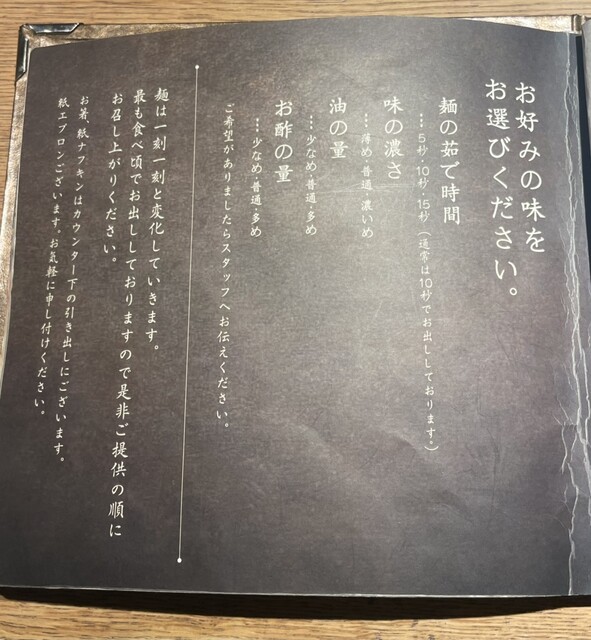 お好みの味を
お選びください。
麺の茹で時間
…5秒・10秒・15秒（通常は10秒でお出ししております。）
味の濃さ
…薄め・普通・濃いめ
油の量
…少なめ・普通・多め
お酢の量
…少なめ・普通・多め
ご希望がありましたらスタッフへお伝えください。
麺は一刻一刻と変化していきます。
最も食べ頃でお出ししておりますので是非ご提供の順に
お召し上がりください。
お箸、紙ナフキンはカウンター下の引き出しにございます。
紙エプロンございます。お気軽に申し付けください。